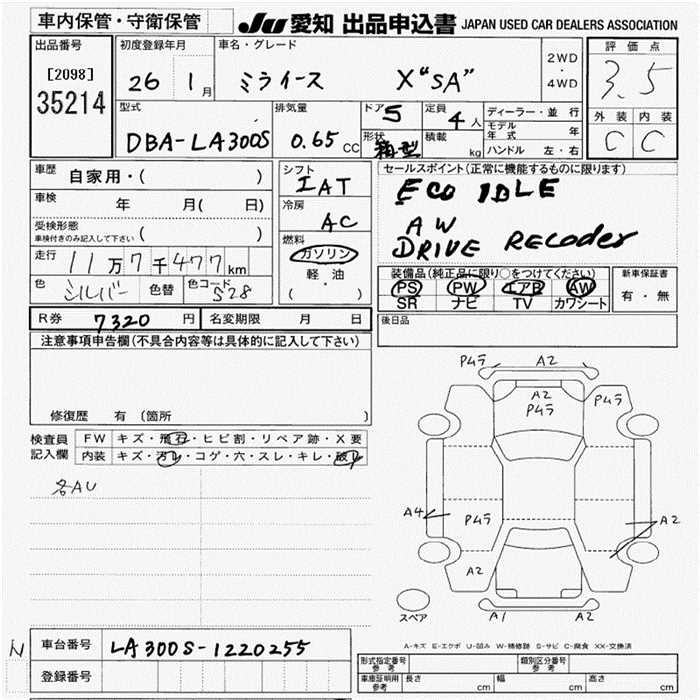 車内保管・守衛保管
JU 愛知 出品申込書 JAPAN USED CAR DEALERS ASSOCIATION
出品番号 初度登録年月 車名・グレード 評価点
[2098]
35214
26 1月 ミライース X "SA"
2WD
・
4WD
3.5
型式 排気量 ドア 5 定員 4人 ディーラー・並行 外装 内装
DBA-LA300S 0.65 CC 形状 箱型 積載 kg
モデル年式 年
ハンドル 左・右
C C
車歴 自家用・( )
シフト IAT
セールスポイント(正常に機能するものに限ります)
ECO IDLE
AW
DRIVE RECODER
車検 年 月( 日)
冷房 AC
受検形態
車検付きのみ記入して下さい ( )
燃料
ガソリン
軽・油
( ・ )
走行 11万7千477km
色 シルバー 色替 色コード S28
装備品(純正品に限り○をつけてください) 新車保証書
PS PW エアB AW
SR ナビ TV カワシート
有・無
R券 7320 円 名変期限 月 日
後日品
注意事項申告欄(不具合内容等は具体的に記入して下さい)
修復歴 有 (箇所 )
検査員記入欄
FW キズ・飛石・ヒビ割・リペア跡・X要
内装 キズ・汚れ・コゲ・穴・スレ・キレ・破れ
名AU
P4ラ A2
A2
P4ラ P4ラ
A4 P4ラ A2
A2
スペア A1 A2
A-キズ E-エクボ U-凹み W-補修跡 S-サビ C-腐食 XX-交換済
N 車台番号 LA300S-1220255
登録番号
形式指定番号 参考 類別区分番号 参考
車庫証明用 参考 長さ cm 幅 cm 高さ cm